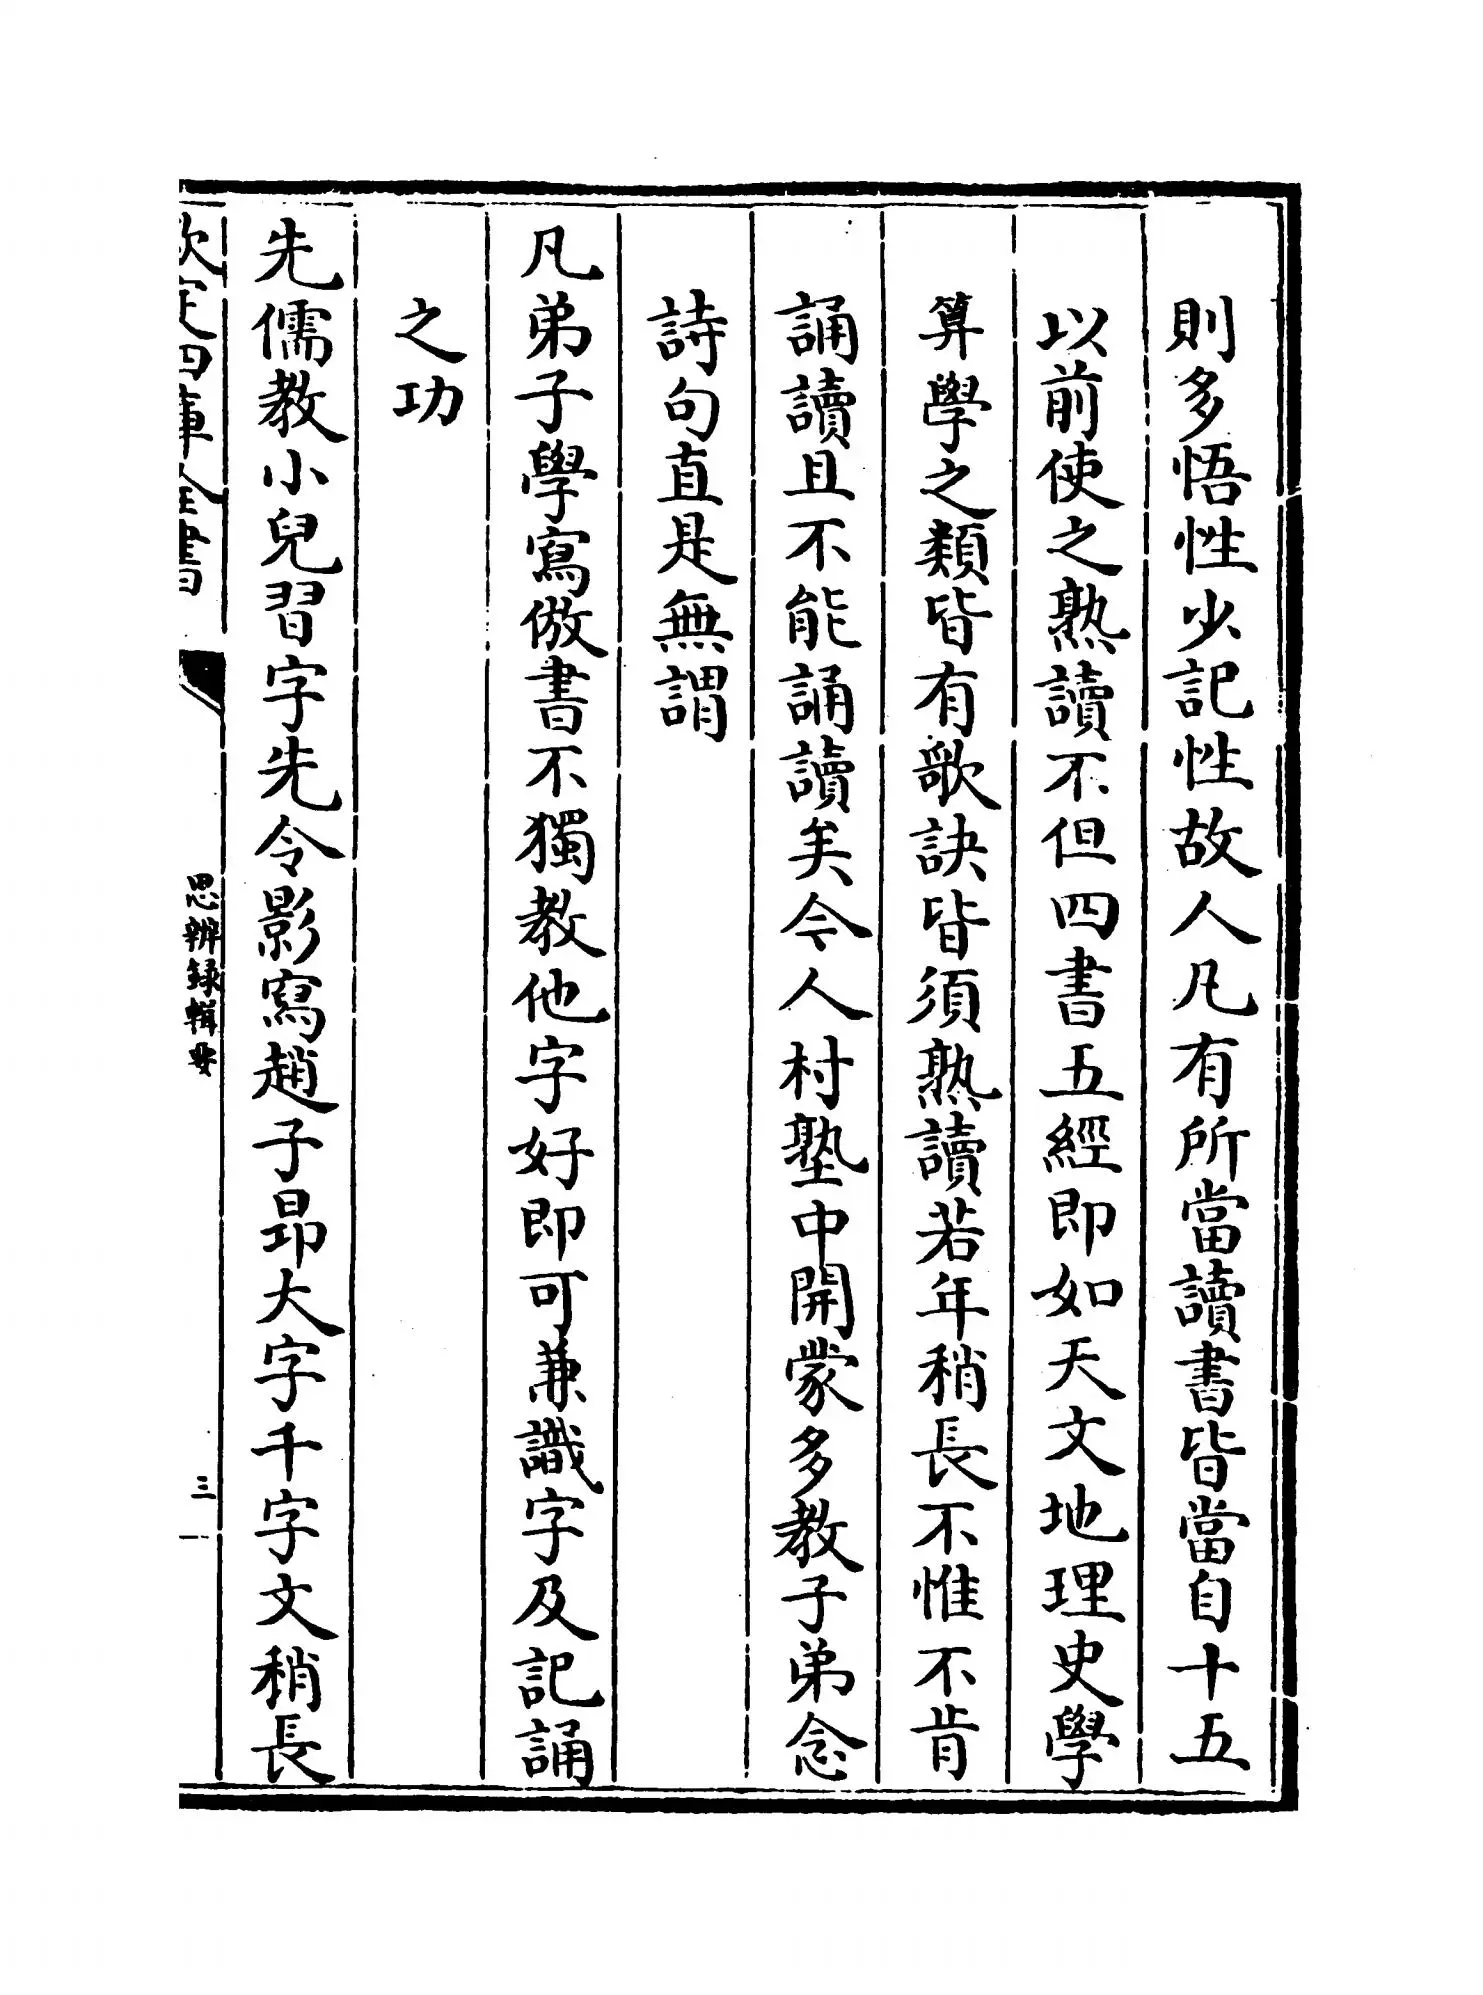 則多悟性少記性故人凡有所當讀書皆當自十五
以前使之熟讀不但四書五經即如天文地理史學
算學之類皆有歌訣皆須熟讀若年稍長不惟不肯
誦讀且不能誦讀矣今人村塾中開蒙多教子弟念
詩句直是無謂
凡弟子學寫倣書不獨教他字好即可兼識字及記誦
之功
先儒教小兒習字先令影寫趙子昻大字千字文稍長
欽定四庫全書
思辨録輯要
三